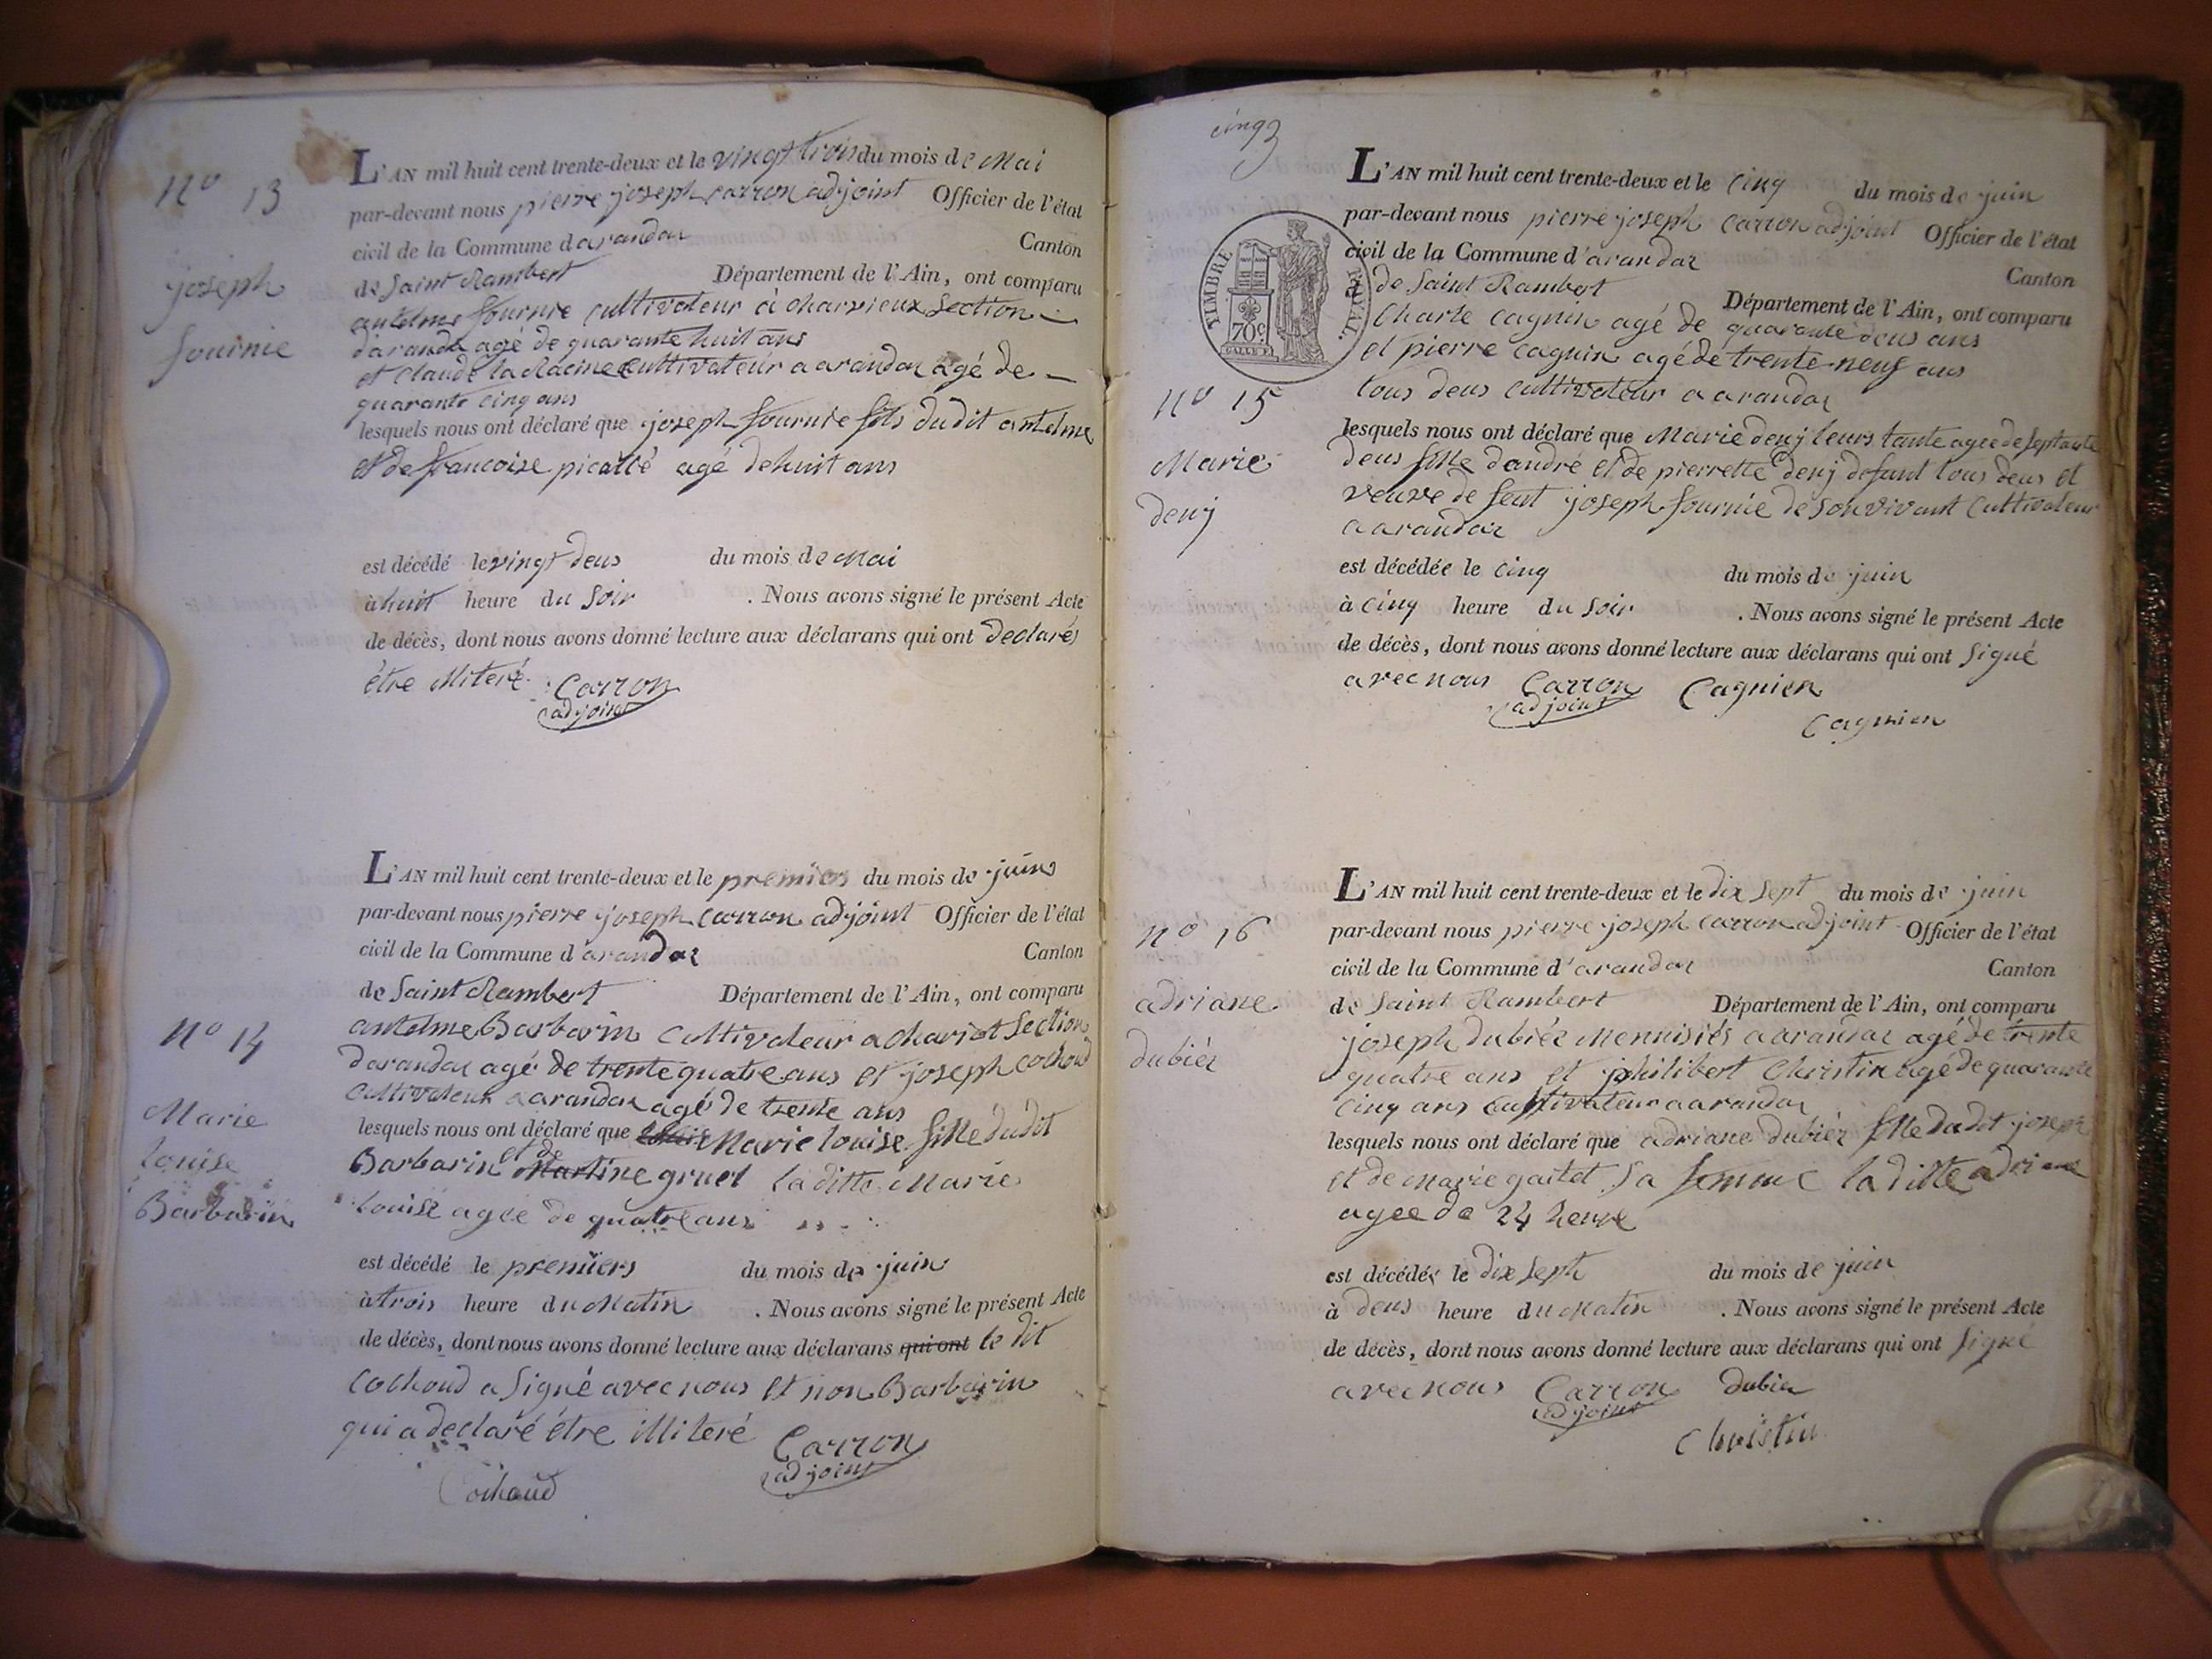 nº 13
joseph
fournie
L'AN mil huit cent trente-deux et le vingt trois du mois de Mai
par-devant nous pierre joseph carron adjoint Officier de l'état
civil de la Commune d arandas Canton
de Saint Rambert Département de l'Ain, ont comparu
antelme fournie cultivateur à charvieux Section
darandas agé de quarante huit ans
et Claude la Racine cultivateur a arandas agé de
quarante cinq ans
lesquels nous ont déclaré que joseph fournie fils dudit antelme
et de francoise agé de huit ans
est décédé le vingt deus du mois de Mai
à huit heure du Soir . Nous avons signé le présent Acte
de décès, dont nous avons donné lecture aux déclarans qui ont declarés
être illiteré. Carron
adjoint
nº 14
Marie
Louise
Barbarin
L'AN mil huit cent trente-deux et le premier du mois de juin
par-devant nous pierre joseph carron adjoint Officier de l'état
civil de la Commune d arandas Canton
de Saint Rambert Département de l'Ain, ont comparu
antelme Barbarin Cultivateur a Section
darandas agé de trente quatre ans et joseph cochoud
cultivateur a arandas agé de trente ans
lesquels nous ont déclaré que Marie louise fille dudit
Barbarin et de Martine gruel la ditte Marie
Louise agee de quatre ans
est décédé le premiers du mois de juin
à trois heure du Matin . Nous avons signé le présent Acte
de décès, dont nous avons donné lecture aux déclarans qui ont le dit
cochoud a Signé avec nous et non Barbarin
qui a declaré être illiteré Carron
adjoint
Cochaud
cinq
TIMBRE ROYAL.
70c
L'AN mil huit cent trente-deux et le cinq du mois de juin
par-devant nous pierre joseph carron adjoint Officier de l'état
civil de la Commune d'arandas Canton
de Saint Rambert Département de l'Ain, ont comparu
Charle cagnin agé de quarante deus ans
et pierre cagnin agé de trente neuf ans
tous deus cultivateur a arandas
nº 15
Marie
denj
lesquels nous ont déclaré que Marie denj leurs tante agee de septante
deus fille dandré et de pierrette denj defunt tous deus et
veuve de feut joseph fournie de son vivant Cultivateur
a arandas
est décédée le cinq du mois de juin
à cinq heure du Soir . Nous avons signé le présent Acte
de décès, dont nous avons donné lecture aux déclarans qui ont Signé
avec nous Carron Cagnien
adjoint Cagnien
nº 16
adriane
dubier
L'AN mil huit cent trente-deux et le dix Sept du mois de juin
par-devant nous pierre joseph carron adjoint Officier de l'état
civil de la Commune d'arandas Canton
de Saint Rambert Département de l'Ain, ont comparu
joseph dubier Mennisiés a arandas agé de trente
quatre ans et philibert Christin agé de quarante
cinq ans cultivateur a arandas
lesquels nous ont déclaré que adriane dubier fille dudit joseph
et de Marie gaitet Sa femme la ditte adriane
agee de 24 heure
est décédée le dix Sept du mois de juin
à deus heure du Matin . Nous avons signé le présent Acte
de décès, dont nous avons donné lecture aux déclarans qui ont Signé
avec nous Carron dubier
adjoint
Christin